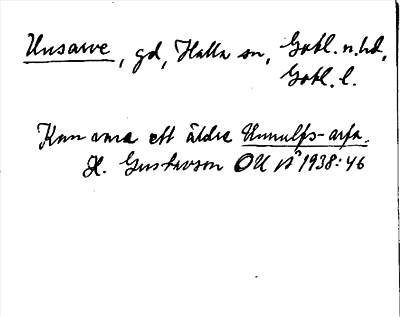 Unsarve, gd, Halla sn, Gotl. n. hd,
Gotl. l.
Kan vara ett äldre Unnulfs-arfa.
H. Gustavson OU 1938:46